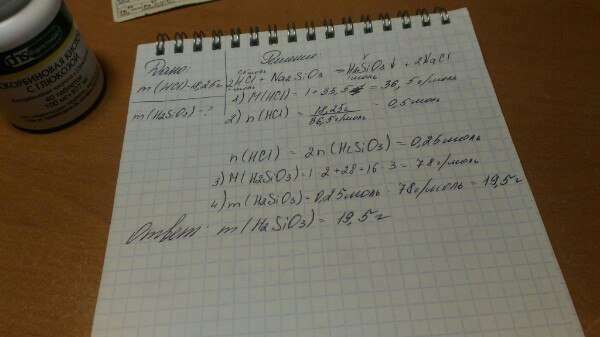 КОРБИНОВАЯ КИСЛОТА
С ГЛЮКОЗОЙ
Дано:
Решение
m(HCl)=18,25г
0,5моль
x моль
2HCl + Na2SiO3 = H2SiO3↓ + 2NaCl
2моль
1моль
1) M(HCl) = 1+35,5 = 36,5 г/моль
m(H2SiO3) - ?
2) n(HCl) = 18,25г / 36,5 г/моль = 0,5моль
n(HCl) = 2n(H2SiO3) = 0,25моль
3) M(H2SiO3) = 1·2+28+16·3 = 78 г/моль
4) m(H2SiO3) = 0,25моль · 78 г/моль = 19,5 г
Ответ: m(H2SiO3) = 19,5 г